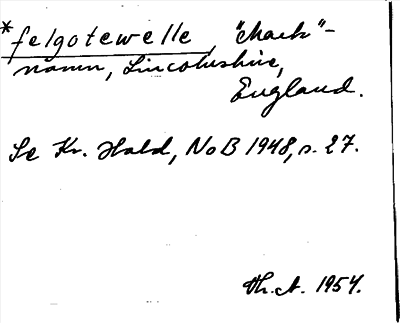 *felgotewelle, "Mark"-
namn, Lincolnshire,
England.
Se Kr. Hald, NoB 1948, s. 27.
Th. A. 1954.